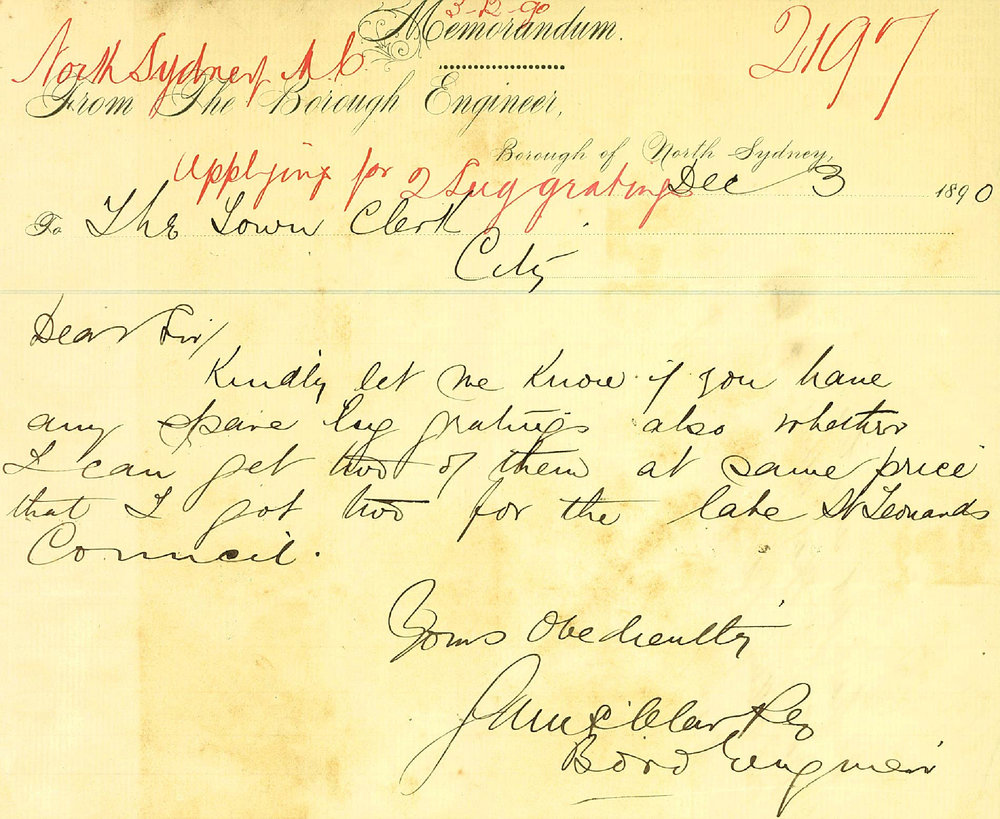 3-12-90
Memorandum.
2197
North Sydney M C
From The Borough Engineer,
Borough of North Sydney,
Applying for 2 Lug gratings
Dec 3 1890
To The Town Clerk
City
Dear Sir/
Kindly let me know if you have
any spare lug gratings also whether
I can get two of them at same price
that I got two for the late St Leonards
Council.
Yours Obediently
Boro Engineer